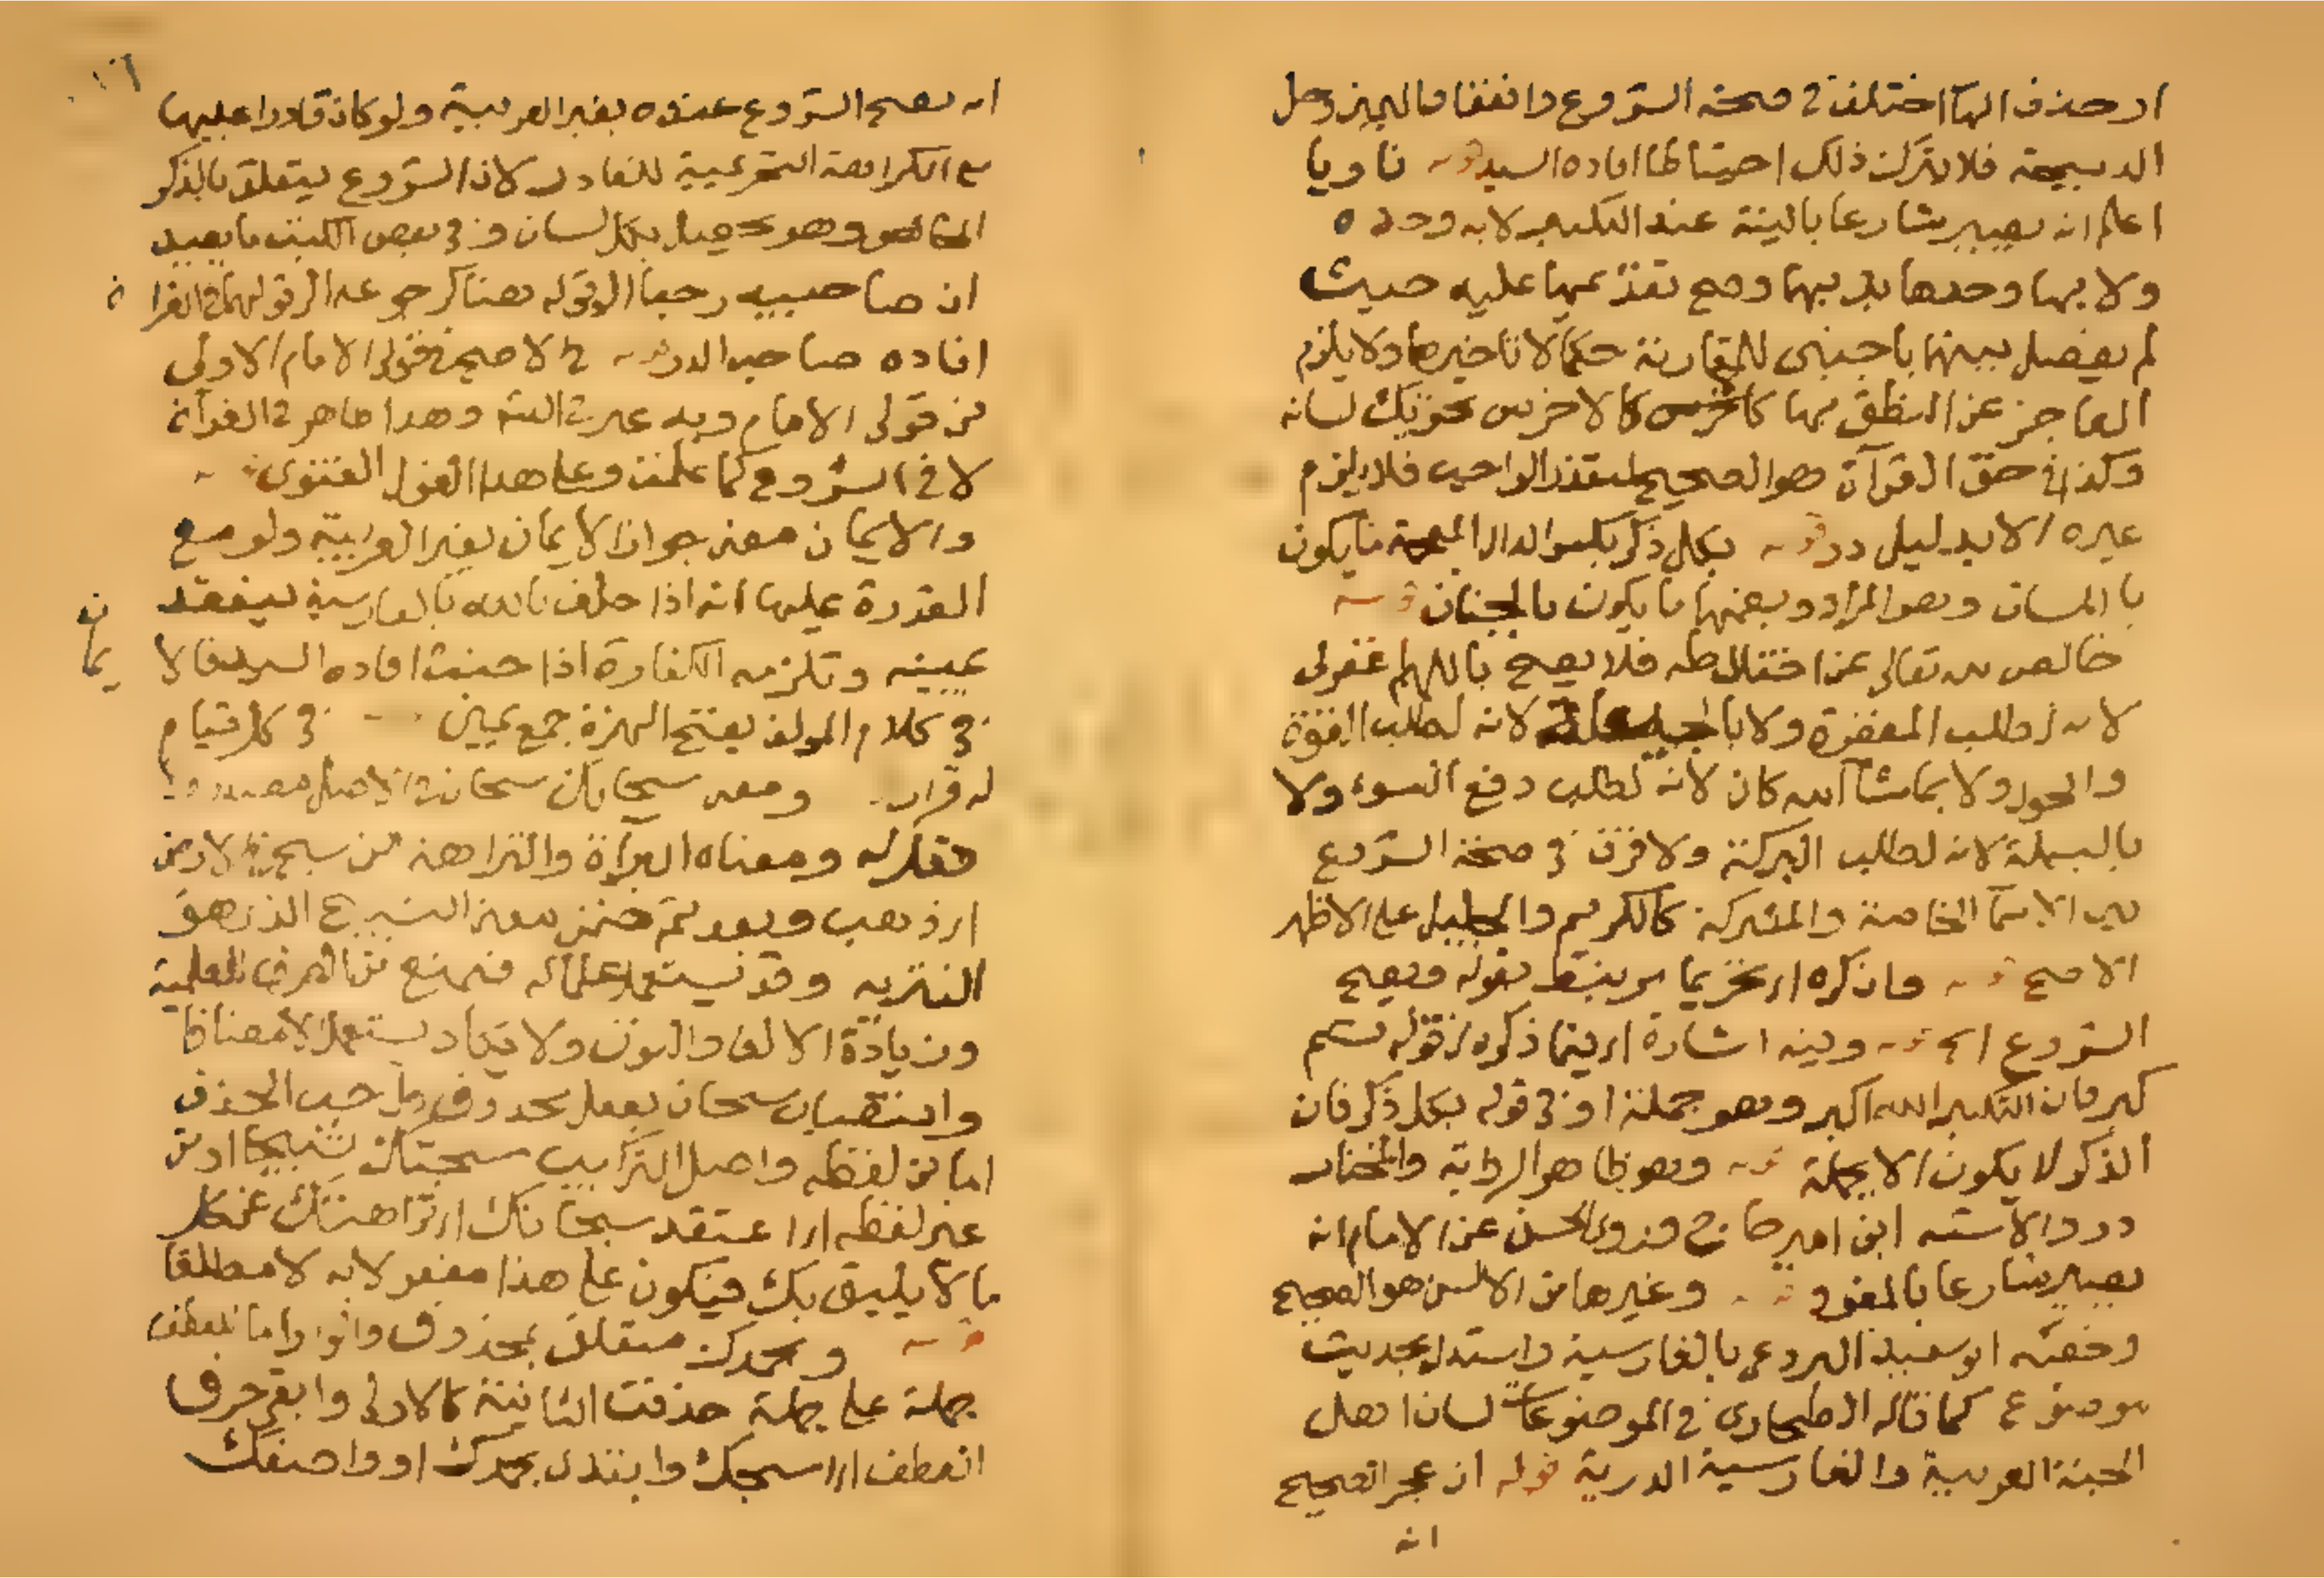 او حذف الهاء اختلف في صحة الشروع واتفقا فاليمين وحل
الذبيحة فلا يترك ذلك احتياطا افاده السيد قوله ناويا
اعلم انه يصير شارعا بالنية عند التكبير لا به وحده
ولا بها وحدها بل بهما وصح تقدمها عليه حيث
لم يفصل بينهما باجنبي للمقارنة حكما لا تاخيرها ولا يلزم
العاجز عن النطق بها كالاخرس تحريك لسانه
وكذا في حق القرآة هو الصحيح لتعذر الواجب فلا يلزم
غيره الا بدليل در قوله بكل ذكر بكسر الذال المعجمة ما يكون
باللسان وهو المراد وبضمها ما يكون بالجنان قوله
خالص لله تعالى عن اختلاطه فلا يصح باللهم اغفر لي
لانه لطلب المغفرة ولا بالحوقلة لانه لطلب القوة
والحول ولا بما شآ الله كان لانه لطلب دفع السوء ولا
بالبسملة لانه لطلب البركة ولا فرق في صحة الشروع
بين الاسمآ الخاصة والمشتركة كالكريم والجليل على الاظهر
الاصح قوله وان كره اي تحريما مرتبط بقوله ويصح
الشروع الخ قوله وفيه اشارة اي فيما ذكره من قوله ثم
كبر فان التكبير الله اكبر وهو جملة او في قوله بكل ذكر فان
الذكر لا يكون الا بجملة قوله وهو ظاهر الرواية والمختار
در والاشبه ابن امير حاج وروى الحسن عن الامام انه
يصير شارعا بالمفرد قوله وغيرها من الالسن هو الصحيح
وخصه ابو سعيد البردعي بالفارسية واستدل بحديث
موضوع كما قاله الطحاوي في الموضوعات لسان اهل
الجنة العربية والفارسية الدرية قوله ان عجز الصحيح
انه
انه يصح الشروع عنده بغير العربية ولو كان قادرا عليها
مع الكراهة التحريمية للقادر لان الشروع يتعلق بالذكر
الخالص وهو يحصل بكل لسان وفي بعض الكتب ما يفيد
ان صاحبيه رجعا الى قوله هنا كرجوعه الى قولهما في القرآة
افاده صاحب الدر قوله في الاصح من قولي الامام الاولى
من قولي الامام وبه عبر في وهذا ظاهر في القرآة
لا في الشروع كما علمت وعلى هذا القول الفتوى
والايمان معنى جواز الايمان بغير العربية ولو مع
القدرة عليها انه اذا حلف بالله بالفارسية ينعقد
يمينه وتلزمه الكفارة اذا حنث افاده السيد فالايمان
في كلام المؤلف بفتح الهمزة جمع يمين في كل قيام
له قرار ومعنى سبحانك سبحان في الاصل مصدر
كغفران ومعناه البرآة والنزاهة من سبح في الارض
اي ذهب وبعد ثم ضمن معنى التسبيح الذي هو
التنزيه وقد يستعمل علما له فيمنع من الصرف للعلمية
وزيادة الالف والنون ولا يكاد يستعمل الا مضافا
وانتصاب سبحان بفعل محذوف واجب الحذف
اما من لفظه واصل التركيب سبحتك تسبيحا او من
غير لفظه اي اعتقد سبحانك اي نزاهتك عن كل
ما لا يليق بك فيكون على هذا مفعولا به لا مطلقا
قوله وبحمدك متعلق بمحذوف والواو اما لعطف
جملة على جملة حذفت الثانية كالاولى وابقي حرف
العطف اي اسبحك وابتدئ بحمدك او واصفك